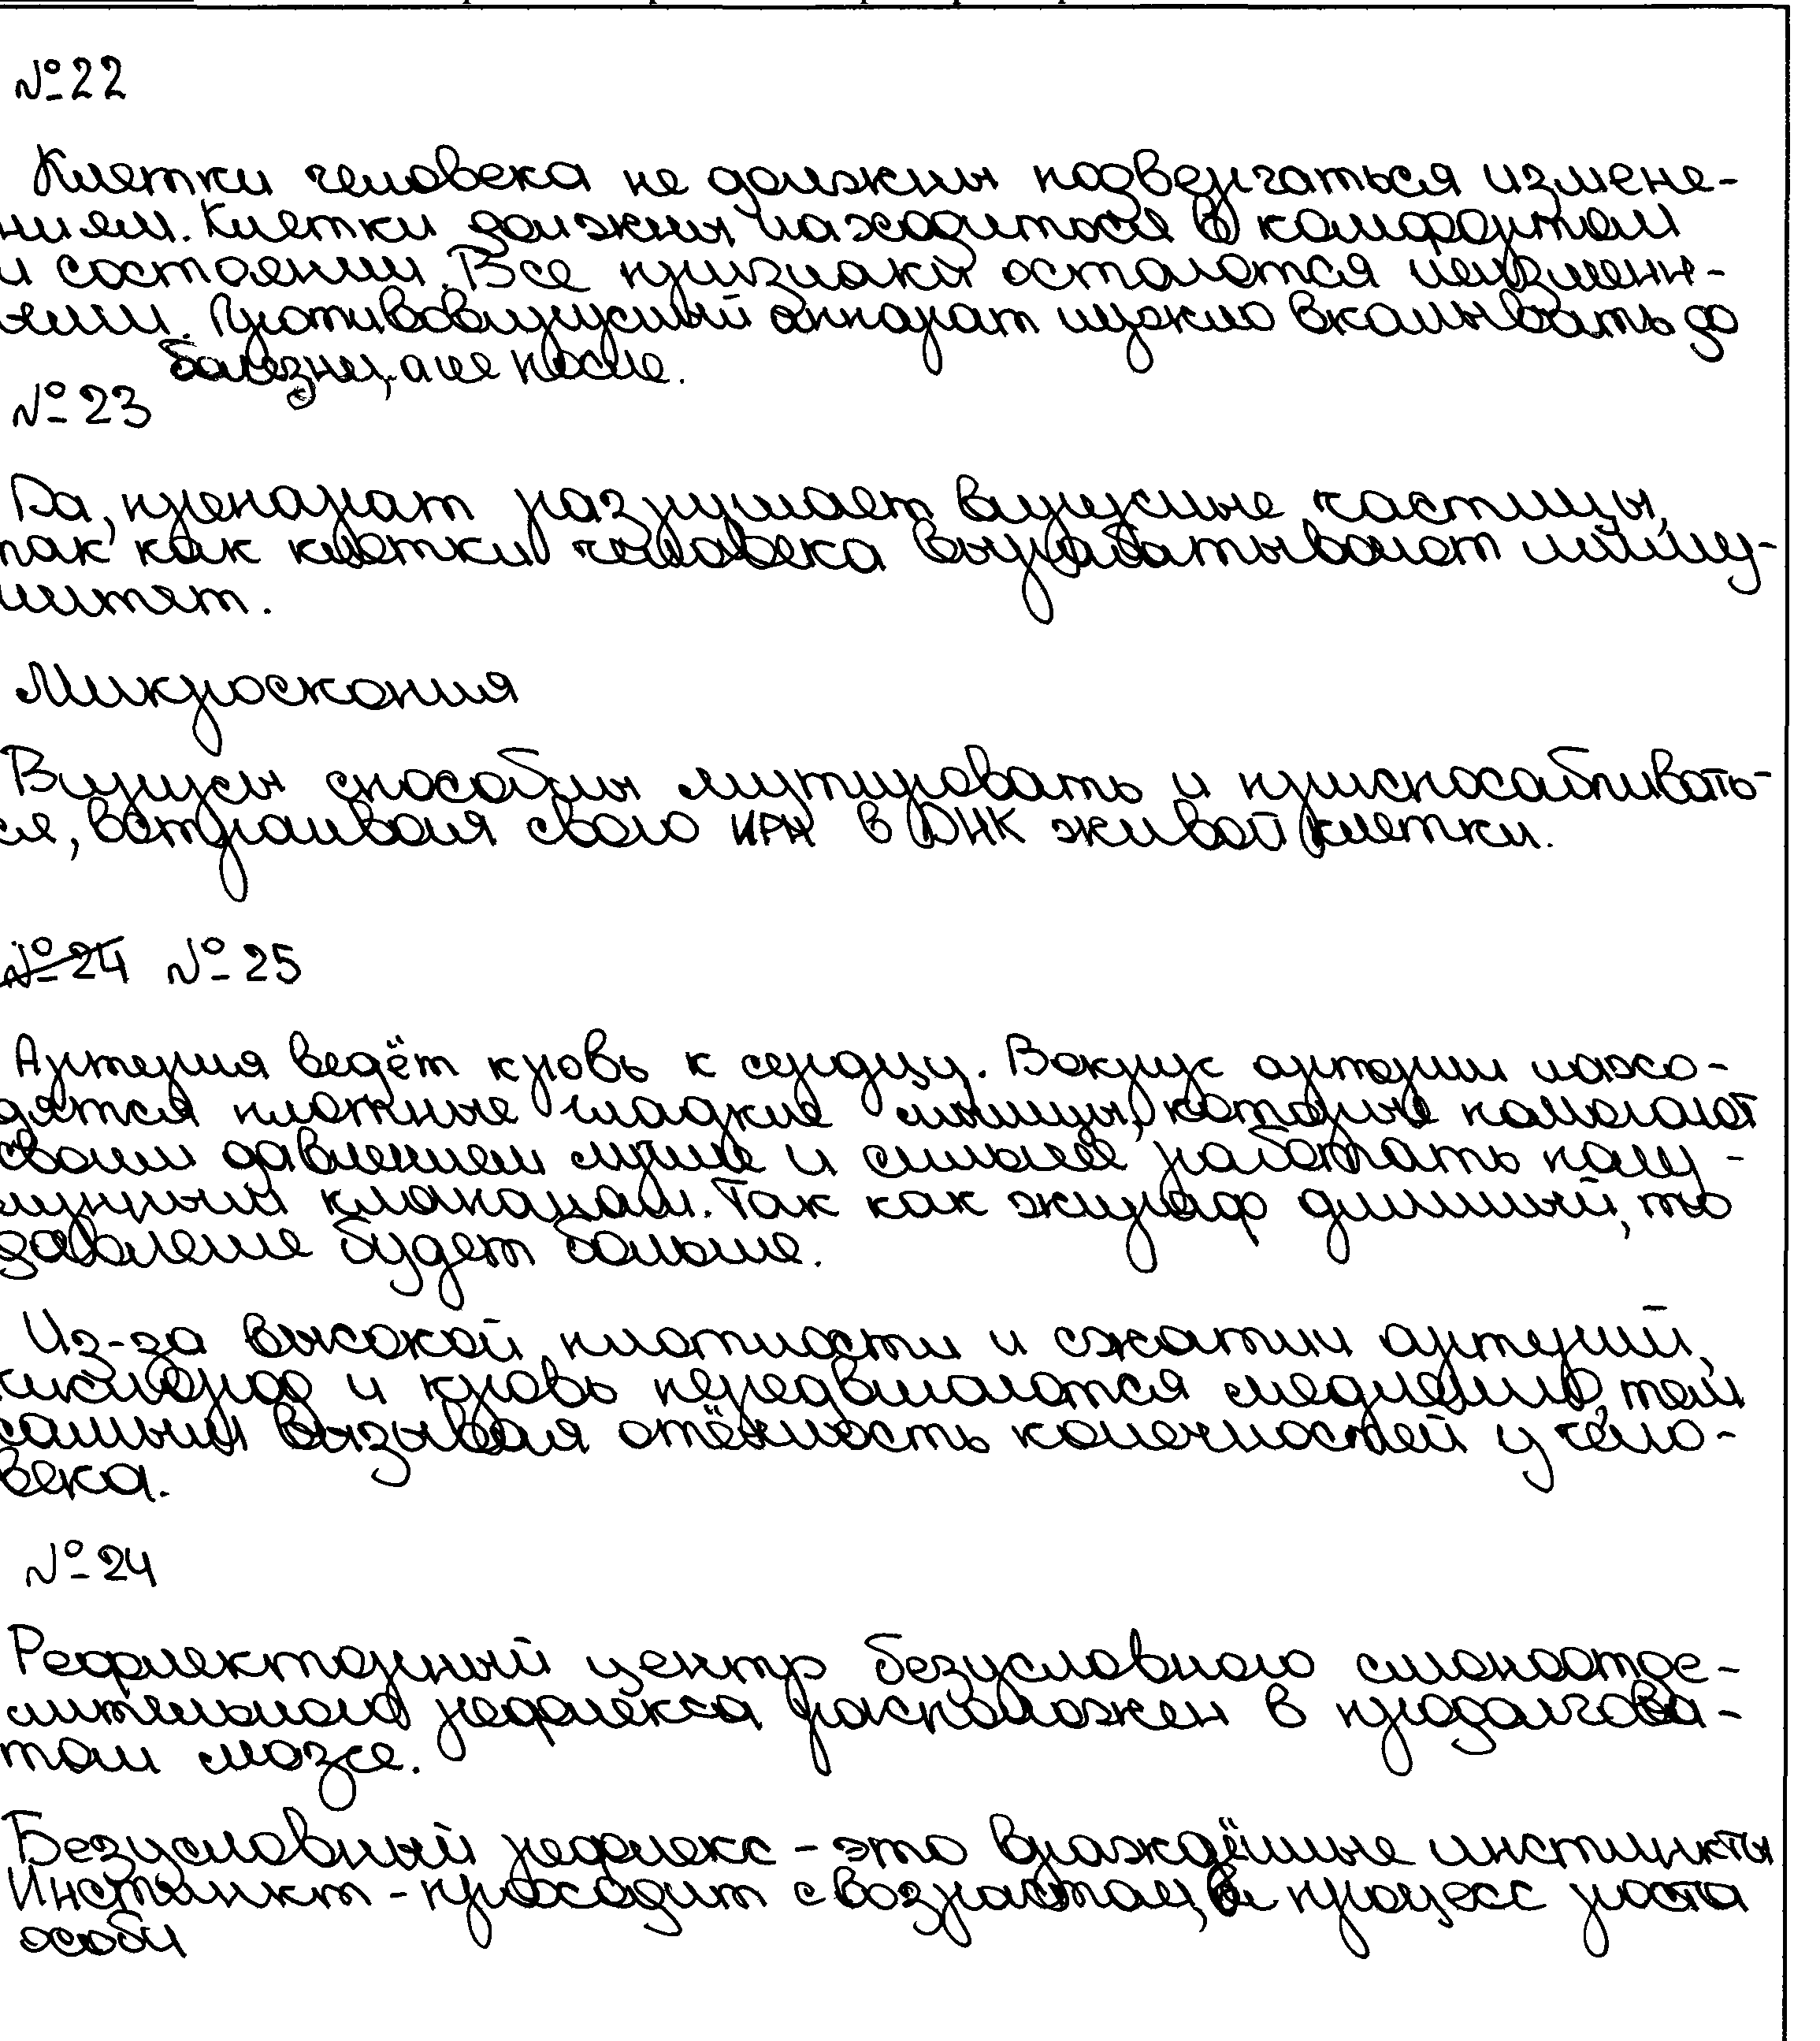 №22
Клетки человека не должны подвергаться измене-
ниям. Клетки должны находиться в комфортом
и состоянии. Все признаки остаются неизменн-
ыми. Противовирусный аппарат нужно вкалывать до
болезни, а не после.
№23
Да, препарат разрушает вирусные частицы,
так как клетки человека вырабатывают имму-
нитет.
Микроскопия
Вирусы способны мутировать и приспосабливать-
ся, встраивая свою ИРН в ДНК живой клетки.
№24 №25
Артерия ведёт кровь к сердцу. Вокруг артерии нахо-
дятся плотные гладкие мышцы, которые помогают
своим давлением лучше и сильнее работать полу-
лунным клапанам. Так как жираф длинный, то
давление будет больше.
Из-за высокой плотности и сжатии артерий,
кислород и кровь передвигаются медленно, тем
самым вызывая отёчность конечностей у чело-
века.
№24
Рефлекторный центр безусловного слюноотде-
лительного рефлекса расположен в продолгова-
том мозге.
Безусловный рефлекс - это врождённые инстинкты
Инстинкт - проходит с возрастом, в процесс роста
особи